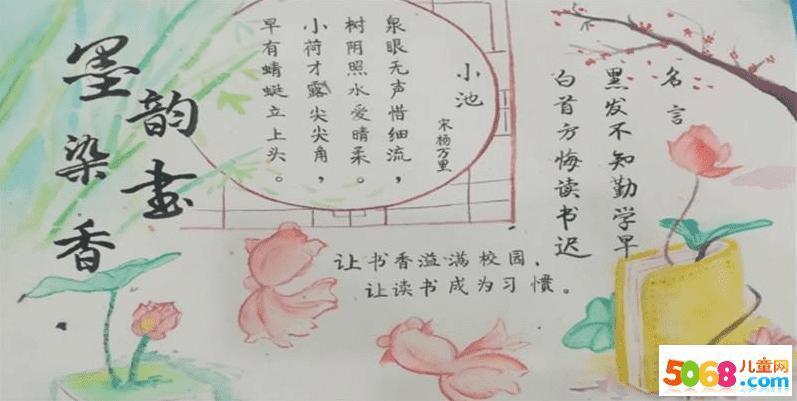 墨韵染書香
小池
宋杨万里
泉眼无声惜细流，
树阴照水爱晴柔。
小荷才露尖尖角，
早有蜻蜓立上头。
名言
黑发不知勤学早
白首方悔读书迟
让书香溢满校园，
让读书成为习惯。
5068儿童网
www.5068.com